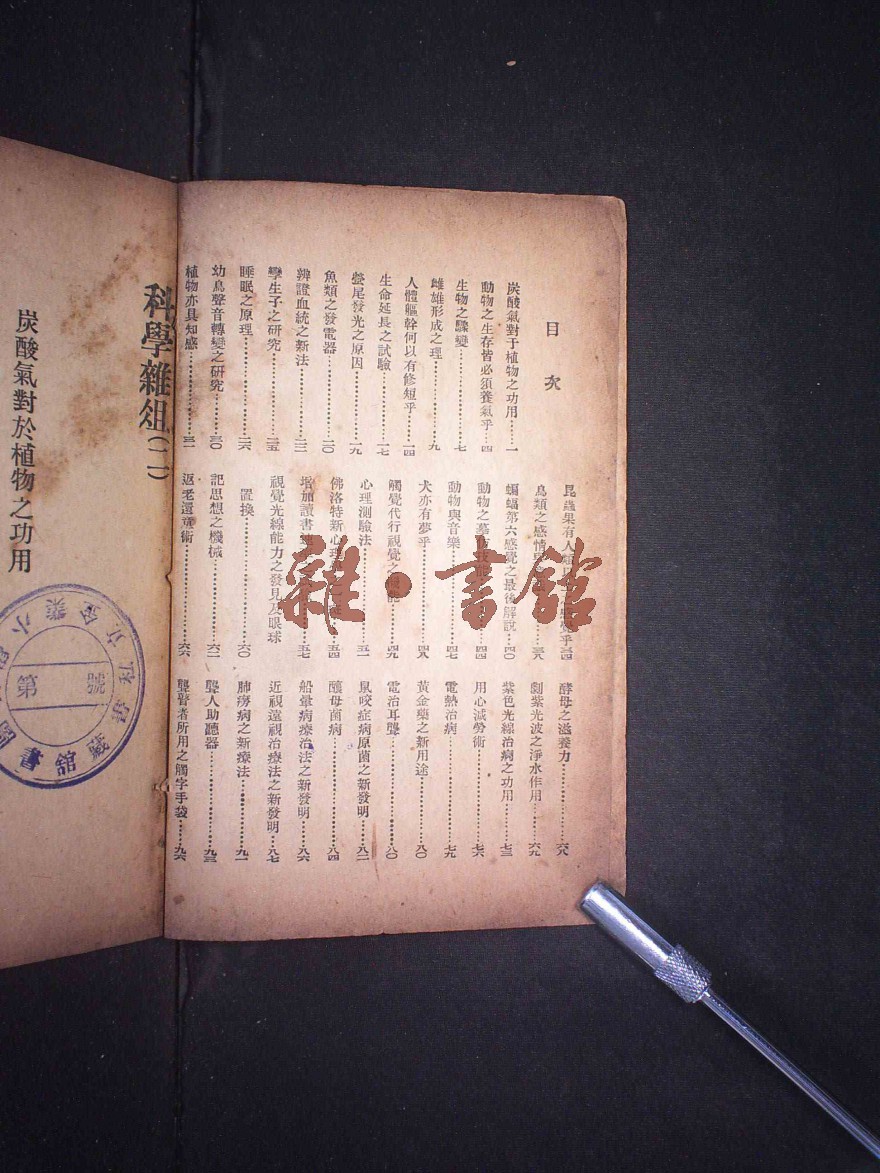 目次
炭酸氣對于植物之功用……一
動物之生存皆必須養氣乎…四
生物之驟變……七
雌雄形成之理……九
人體軀幹何以有修短乎……一四
生命延長之試驗……一七
螢尾發光之原因……一九
魚類之發電器……二〇
辨證血統之新法……二二
孿生子之研究……二五
睡眠之原理……二六
幼鳥聲音轉變之研究……三〇
植物亦具知感……三一
昆蟲果有人類
鳥類之感情……三八
蝙蝠第六感覺之最後解說…四〇
動物之……四四
動物與音樂……四七
犬亦有夢乎……四八
觸覺代行視覺之……四九
心理測驗法……五一
佛洛特新心理……五四
增加讀書……五七
視覺光線能力之發見及眼球
置換……六〇
記思想之機械……六二
返老還童術……六六
酵母之滋養力……六八
劇紫光波之淨水作用……六九
紫色光線治病之功用……七三
用心減勞術……七六
電熱治病……七九
黃金藥之新用途……八〇
電治耳聾……八〇
鼠咬症病原菌之新發明……八二
釀母菌病……八四
船暈病療治法之新發明……八六
近視遠視治療法之新發明…八七
肺癆病之新療法……九一
聾人助聽器……九三
聾瞽者所用之觸字手袋……九六
科學雜俎(二)
炭酸氣對於植物之功用
第 號
雜·書館